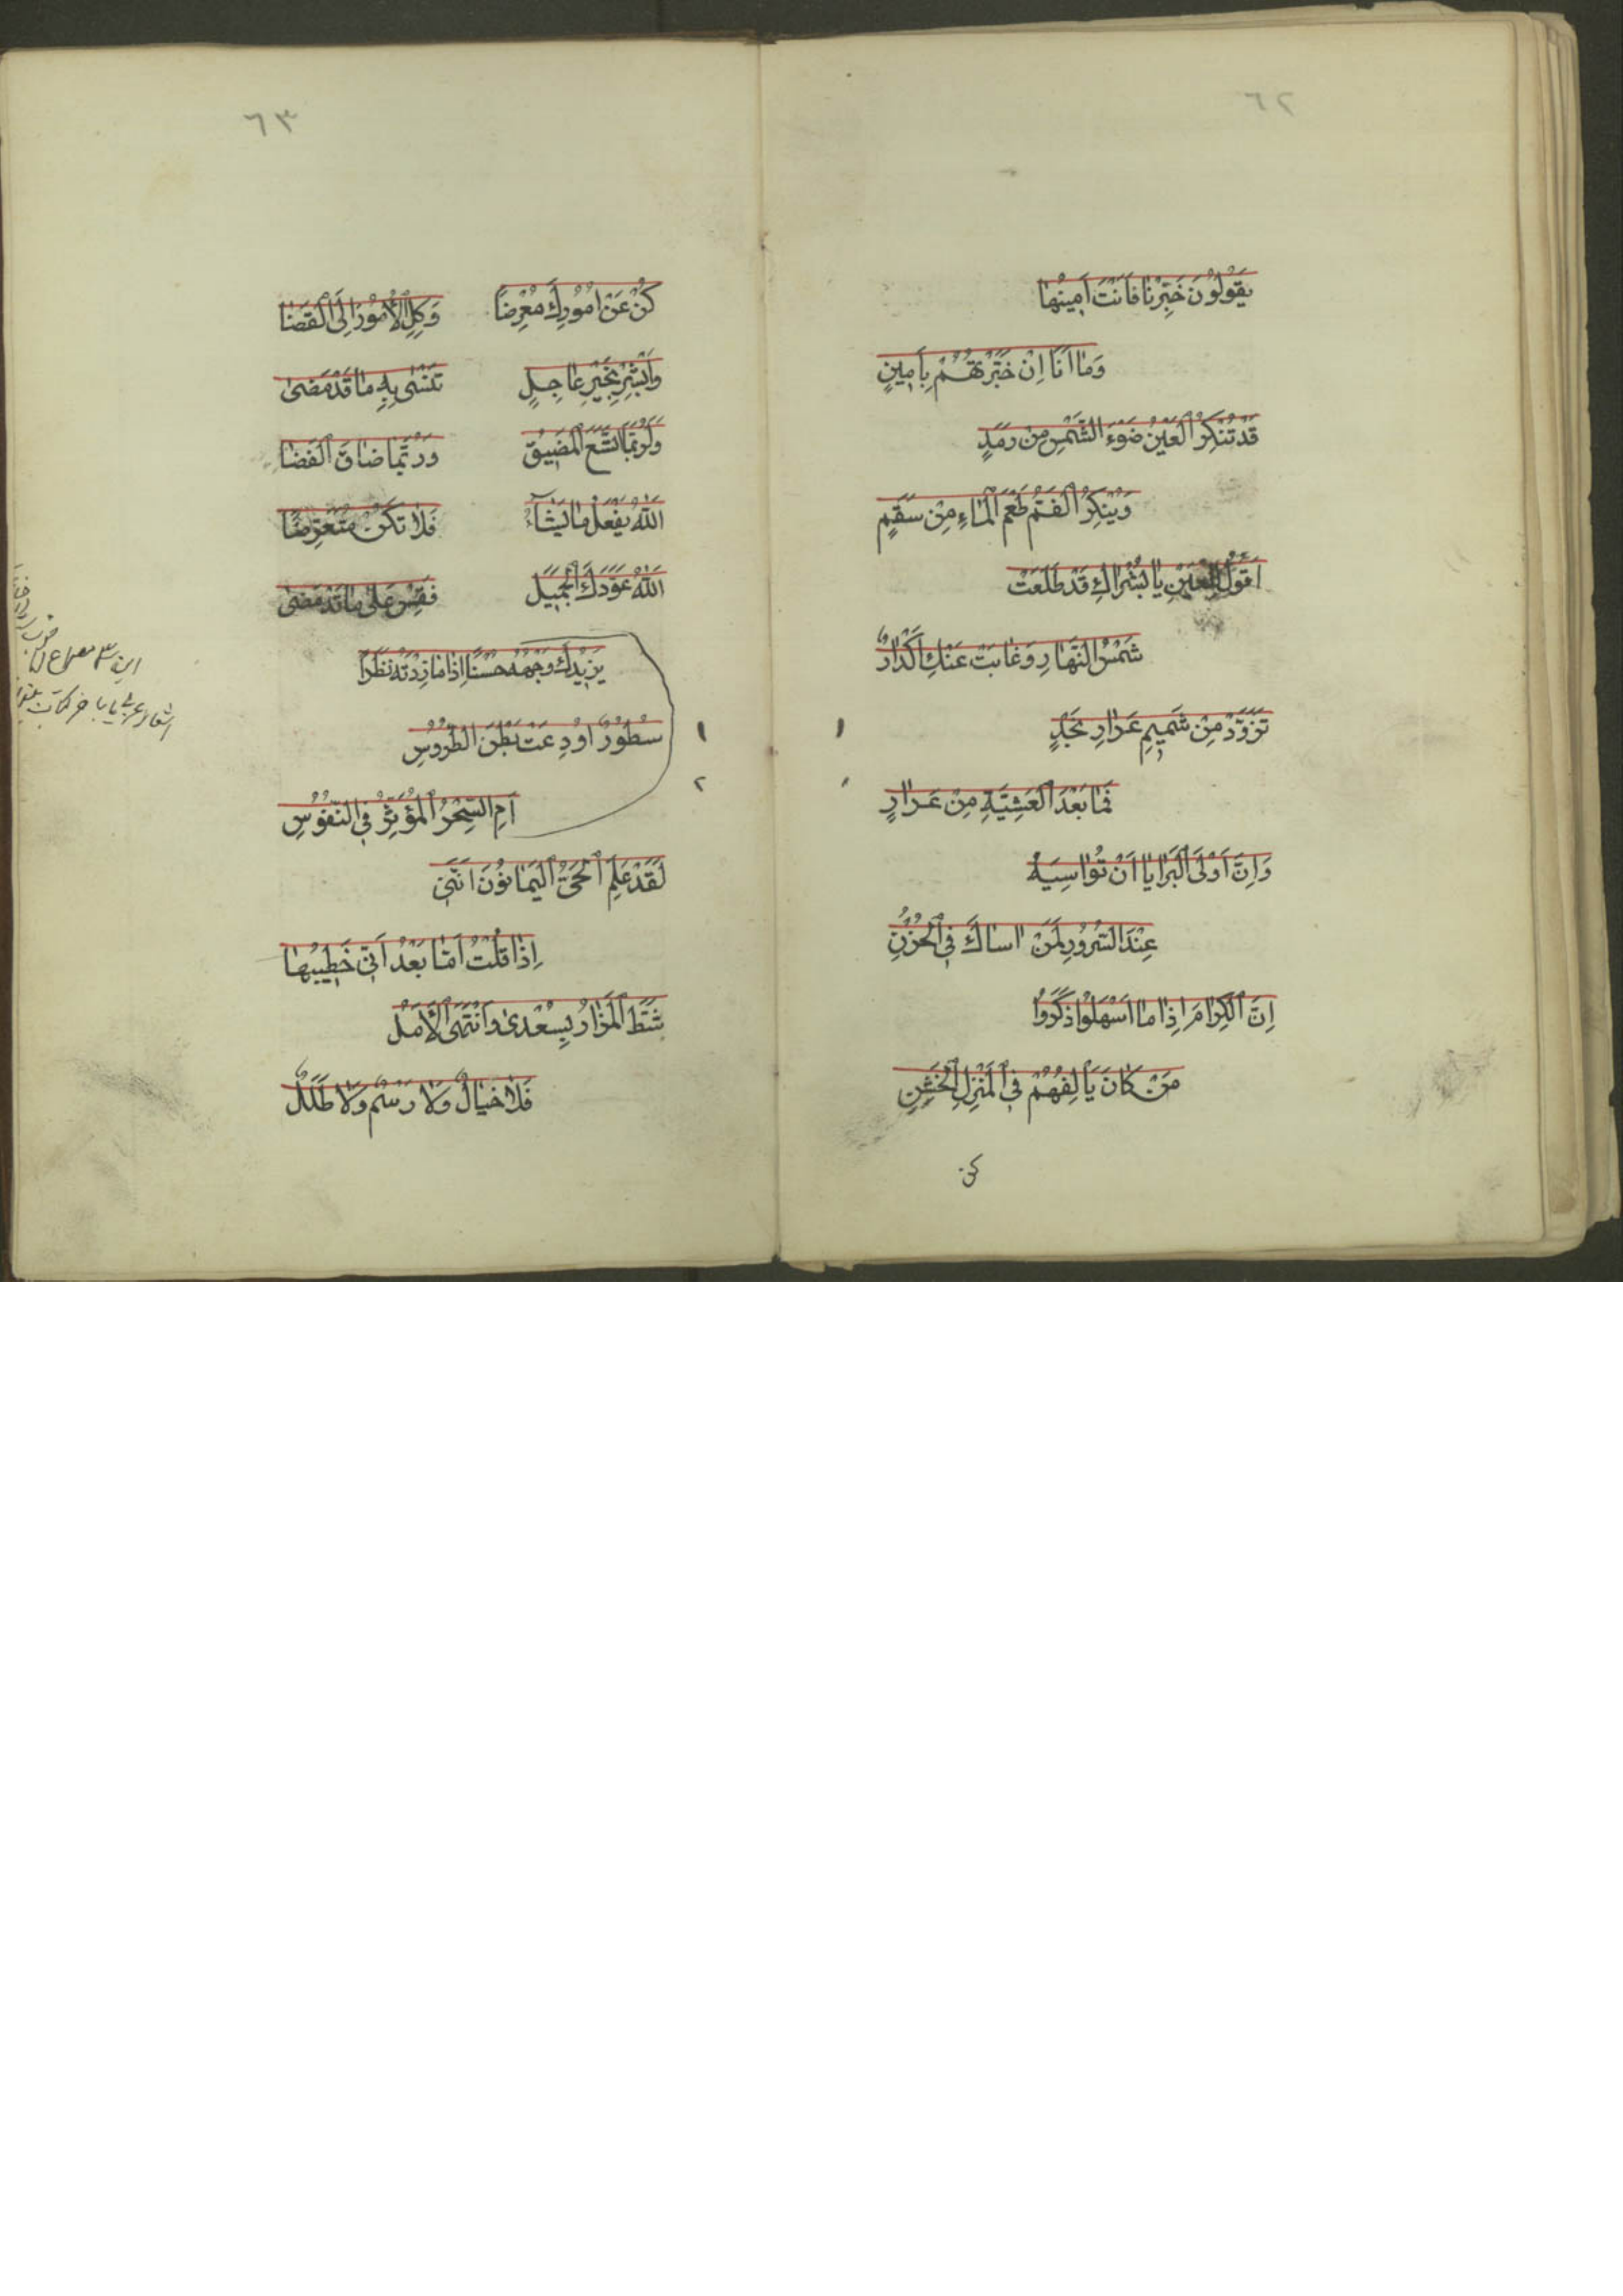 ٦٢
يَقُولُونَ خَبِّرْنَا فَاَنْتَ اَمِينُهَا
وَمَا اَنَا اِنْ خَبَّرْتُهُمْ بِاَمِينٍ
قَدْ تُنْكِرُ الْعَيْنُ ضَوْءَ الشَّمْسِ مِنْ رَمَدٍ
وَيُنْكِرُ الْفَمُ طَعْمَ الْمَاءِ مِنْ سَقَمٍ
اَقُولُ لِلْعَيْنِ يَا بُشْرَاكِ قَدْ طَلَعَتْ
شَمْسُ النَّهَارِ وَغَابَتْ عَنْكِ اَكْدَارُ
تَزَوَّدْ مِنْ شَمِيمِ عَرَارِ نَجْدٍ
فَمَا بَعْدَ الْعَشِيَّةِ مِنْ عَرَارٍ
وَاِنَّ اَوْلَى الْبَرَايَا اَنْ تُوَاسِيَهُ
عِنْدَ السُّرُورِ لَمَنْ اساكَ فِي الْحُزْنِ
اِنَّ الْكِرَامَ اِذَا مَا اَسْهَلُوا ذَكَرُوا
مَنْ كَانَ يَأْلِفُهُمْ فِي الْمَنْزِلِ الْخَشِنِ
كن
٦٣
كُنْ عَنْ اُمُورِكَ مُعْرِضًا وَكِلِ الْاُمُورَ اِلَى الْقَضَا
وَابْشِرْ بِخَيْرٍ عَاجِلٍ تَنْسٰى بِهِ مَا قَدْ مَضىٰ
وَلَرُبَّمَا اتَّسَعَ الْمَضِيقُ وَرُبَّمَا ضَاقَ الْفَضَا
اَللّٰهُ يَفْعَلُ مَا يَشَآءُ فَلَا تَكُنْ مُتَعَرِّضًا
اَللّٰهُ عَوَّدَكَ الْجَمِيلَ فَقِسْ عَلٰى مَا قَدْ مَضىٰ
يَزِيدُكَ وَجْهُهُ حُسْنًا اِذَا مَا زِدْتَهُ نَظَرًا
١ سُطُورٌ اُودِعَتْ بَطْنَ الطُّرُوسِ
٢ اَمِ السِّحْرُ الْمُؤَثِّرُ فِي النُّفُوسِ
لَقَدْ عَلِمَ الْحَىُّ الْيَمَانُونَ اَنَّنِي
اِذَا قُلْتُ اَمَّا بَعْدُ اَنِّي خَطِيبُهَا
شَطَّ الْمَزَارُ بِسُعْدىٰ وَانْتَهَى الْاَمَلُ
فَلَا خَيَالٌ وَلَا رَسْمٌ وَلَا طَلَلُ
اين ٣ مصراع
اشعار عربى